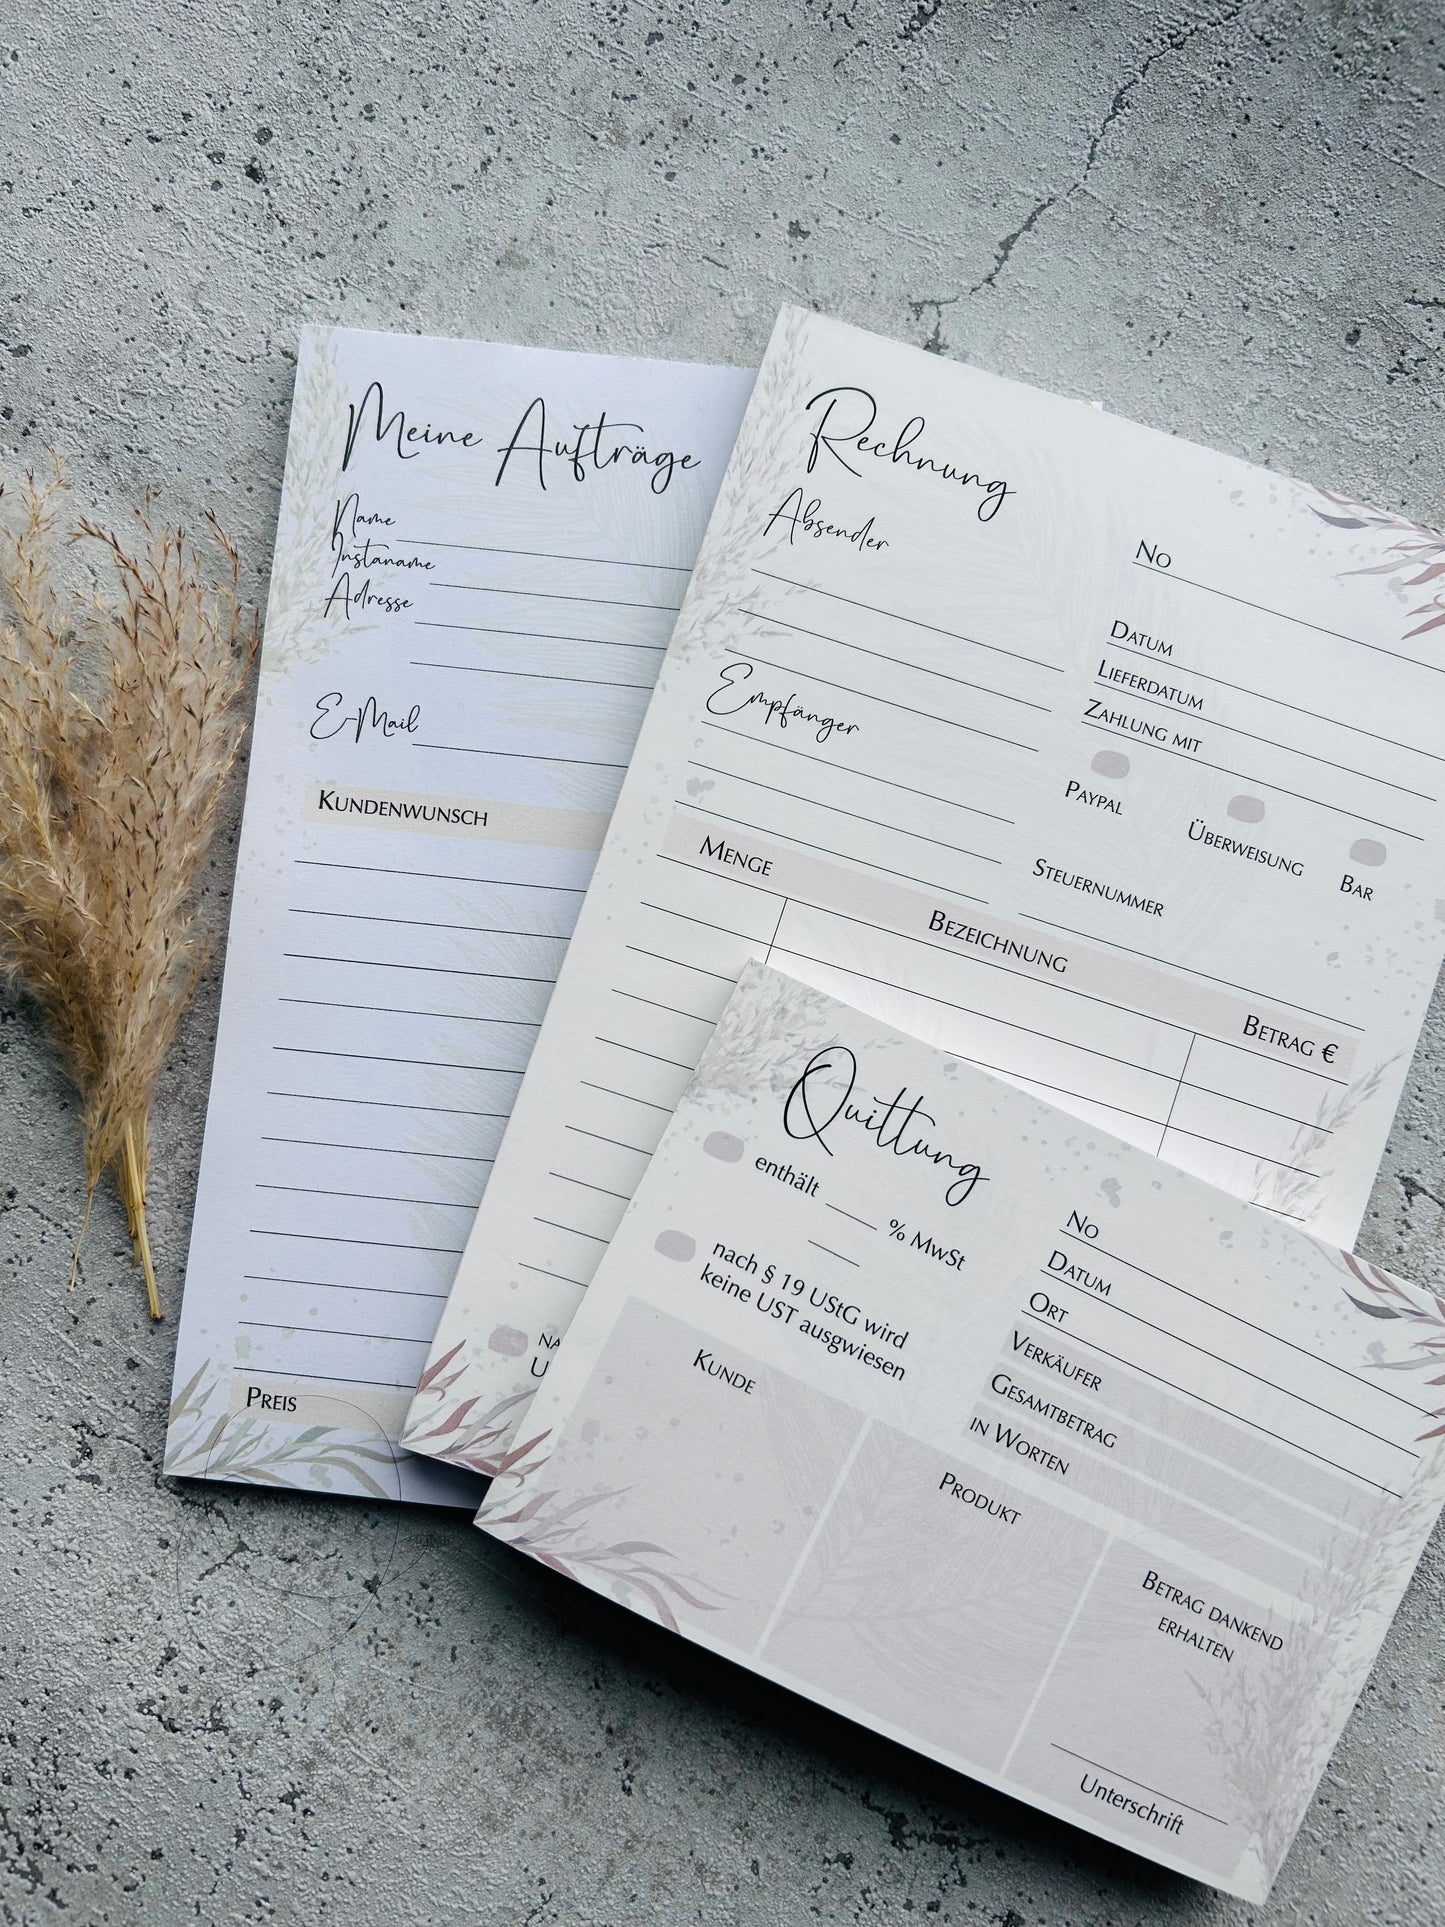 Meine Aufträge
Name
Instaname
Adresse
E-Mail
KUNDENWUNSCH
PREIS
Rechnung
Absender
Empfänger
NO
DATUM
LIEFERDATUM
ZAHLUNG MIT
PAYPAL
ÜBERWEISUNG
BAR
STEUERNUMMER
MENGE
BEZEICHNUNG
BETRAG €
NA
U
Quittung
enthält % MwSt
nach § 19 UStG wird
keine UST ausgwiesen
NO
DATUM
ORT
VERKÄUFER
GESAMTBETRAG
IN WORTEN
KUNDE
PRODUKT
BETRAG DANKEND
ERHALTEN
Unterschrift